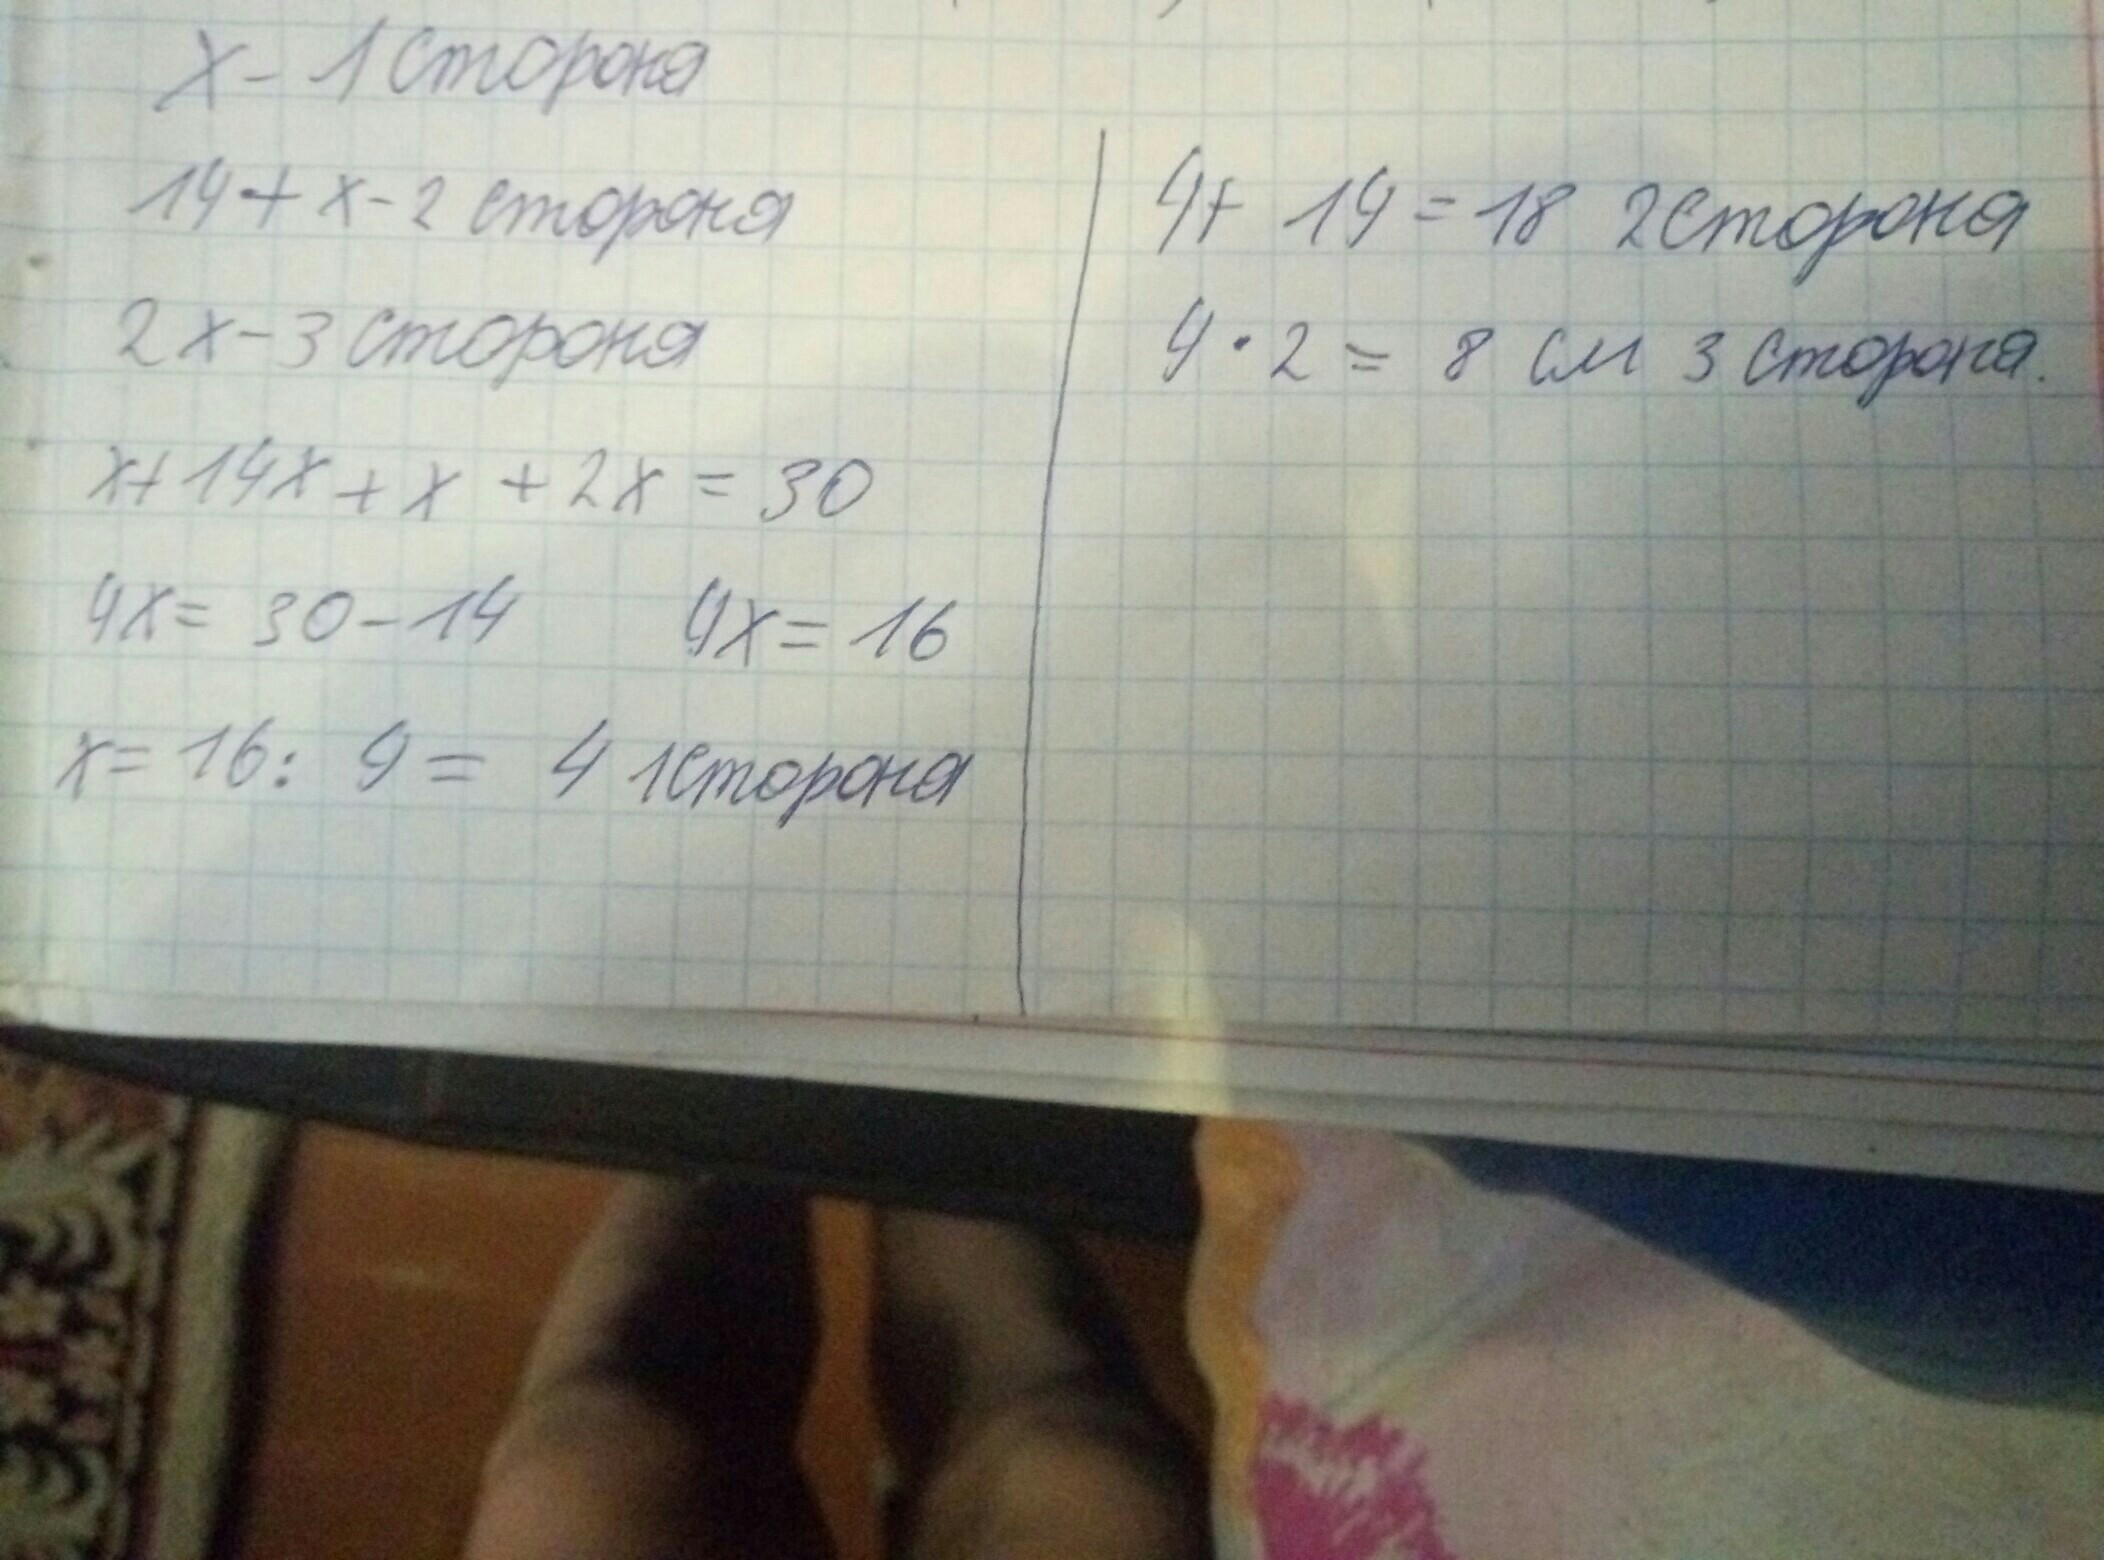 x - 1 сторона
14 + x - 2 сторона
2x - 3 сторона
x + 14x + x + 2x = 30
4x = 30 - 14 4x = 16
x = 16 : 4 = 4 1 сторона
4 + 14 = 18 2 сторона
4 · 2 = 8 см 3 сторона.